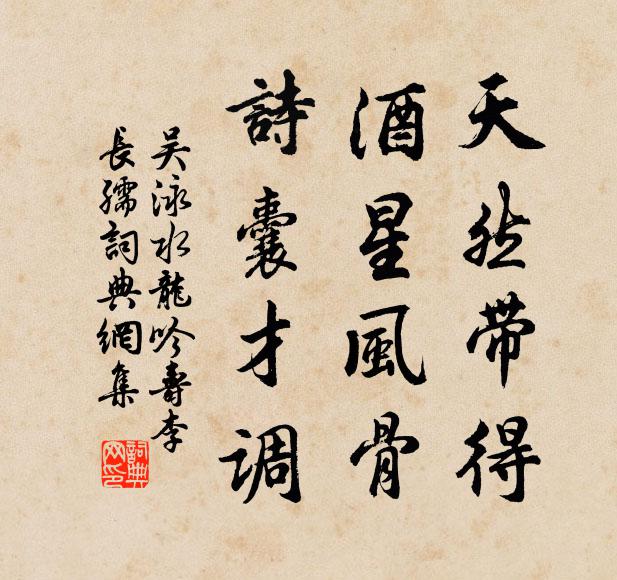 天然带得
酒星風骨
詩囊才调
吴泳水龍吟壽李
長孺詞典網集
詞典
网印